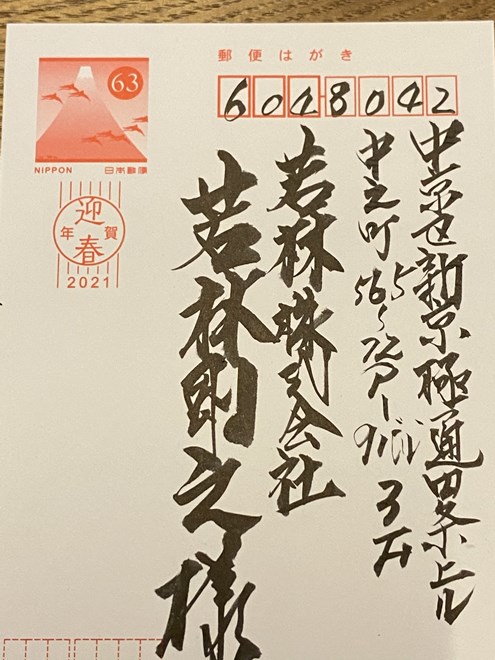 郵便はがき
63
NIPPON 日本郵便
迎春
年賀
2021
6048042
中京区新京極通四条上ル
中之町565〜72
若林株式会社
若林剛之様